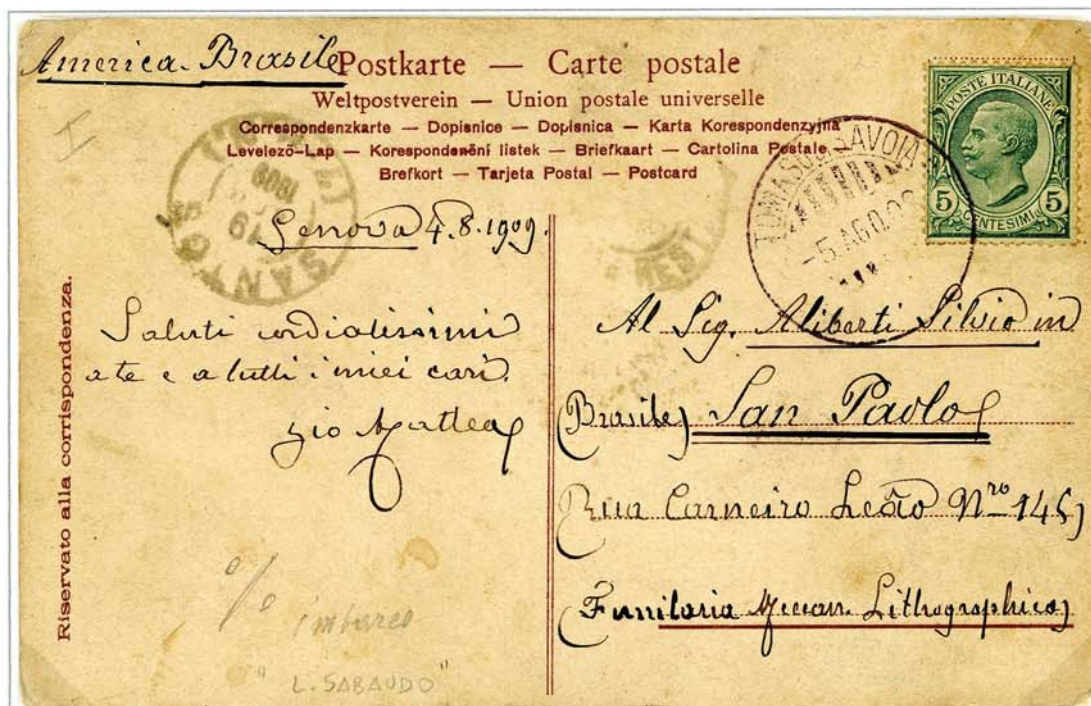 America. Brasile
Postkarte — Carte postale
Weltpostverein — Union postale universelle
Correspondenzkarte — Dopisnice — Dopisnica — Karta Korespondenzyjna
Levelező-Lap — Korespondenění listek — Briefkaart — Cartolina Postale
Brefkort — Tarjeta Postal — Postcard
POSTE ITALIANE
5 5
CENTESIMI
TOMASO DI SAVOIA
-5 AGO.09
SANTOS
19
1909
Genova 4.8.1909.
Riservato alla corrispondenza.
Saluti cordialissimi
a te e a tutti i miei cari.
zio Mattea
Al Sig. Aliberti Silvio in
(Brasile) San Paolo
Rua Carneiro Leão Nro 145
(Funilaria Meccan. Lithographica)
% imbarco
"L. SABAUDO"